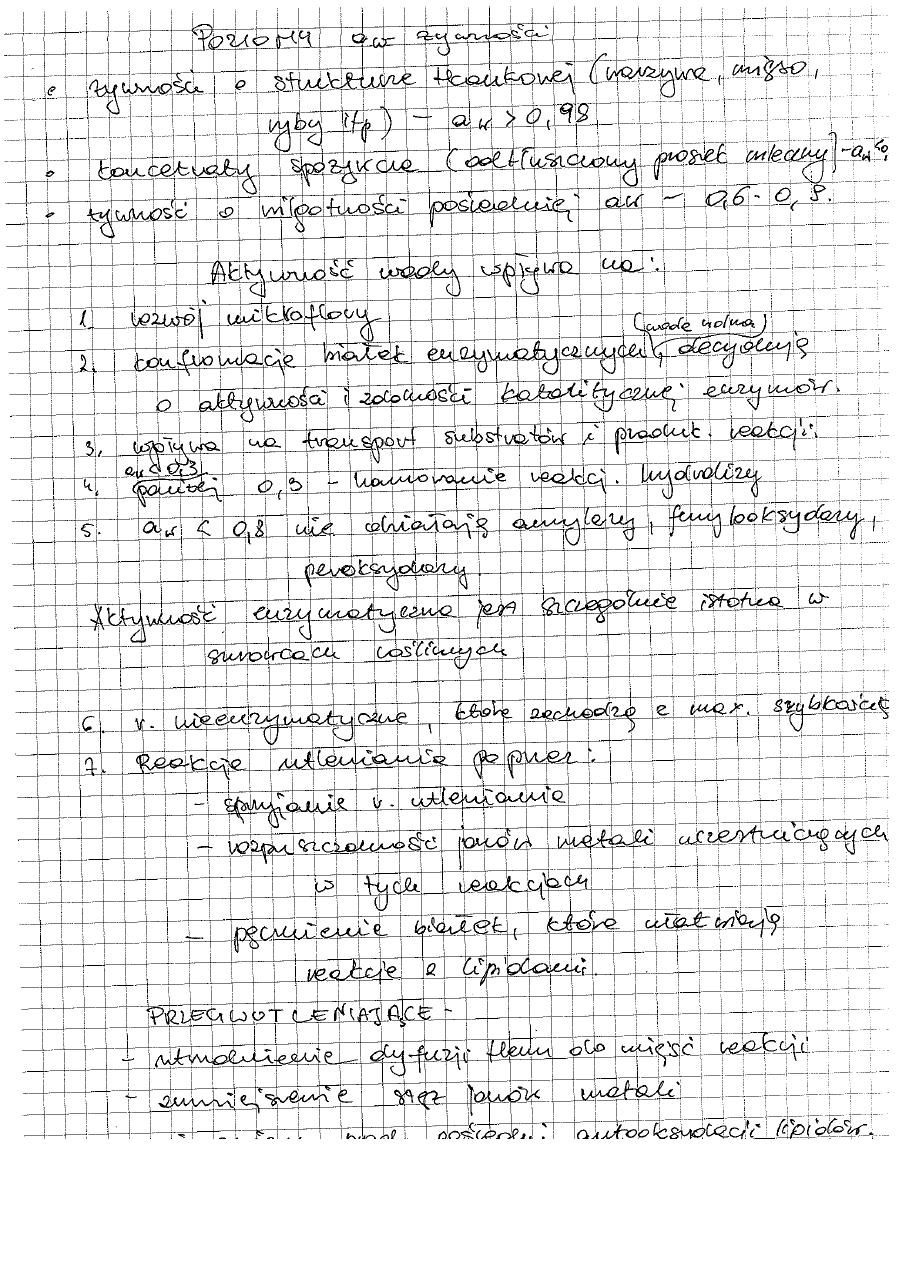 POZIOMY aw żywności
• żywności o strukturze tkankowej (warzywa, mięso,
ryby itp) – aw > 0,98
• koncetraty spożywcze (odtłuszczony proszek mleczny) – aw
• żywność o wilgotności pośredniej aw – 0,6 - 0,8.
Aktywność wody wpływa na:
1. rozwój mikroflory
(woda wolna)
2. konfromację białek enzymatycznych, decydują
o aktywności i zdolności katalitycznej enzymów.
3. wpływa na transport substratów i produkt. reakcji
aw < 0,3
4. poniżej 0,3 – hamowanie reakcj. hydrolizy
5. aw < 0,8 nie działają amylazy, fenylooksydazy,
peroksydazy
Aktywność enzymatyczna jest szczególnie istotna w
surowcach roślinnych
6. r. nieenzymatyczne, które zachodzą z max. szybkością
7. Reakcje utleniania poprzez:
– sprzyjanie r. utleniania
– rozpuszczalność jonów metali uczestniczących
w tych reakcjach
– pęcznienie białek, które ułatwiają
reakcje z lipidami.
PRZECIWUTLENIAJĄCE –
– utrudnienie dyfuzji tlenu do miejsc reakcji
– zmniejszenie stęż jonów metali
autooksydacji lipidów.